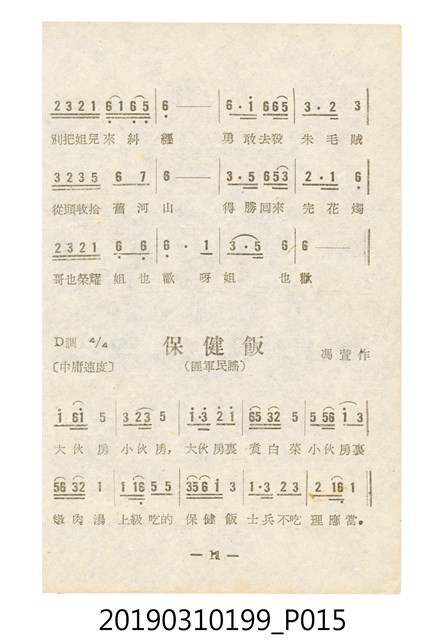 2 3 2 1 6 1 6 5 6· —— 6· 1 6 6 5 3· 2 3
別把姐兒來糾纏 勇敢去殺朱毛賊
3 2 3 5 6 7 6 —— 3· 5 6 5 3 2· 1 6
從頭收拾舊河山 得勝囘來完花燭
2 3 2 1 6 6 6· 1 3· 5 6 6 ——
哥也榮耀姐也歡呀姐也歡
D調 4/4 保健飯 馮萱作
〔中庸速度〕 (匪軍民謠)
1 61 5 3 23 5 1·3 2 1 65 32 5 5 56 1 3
大伙房小伙房，大伙房裏煑白菜小伙房裏
56 32 1 1 16 5 5 35 6 1 3 1·3 2 3 2 16 1
燉肉湯上級吃的保健飯士兵不吃理應當。
20190310199_P015